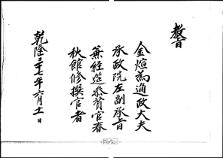 敎旨
金煊爲通政大夫
承政院左副承旨
兼經筵參贊官春
秋館修撰官者
乾隆三十七年六月十一日